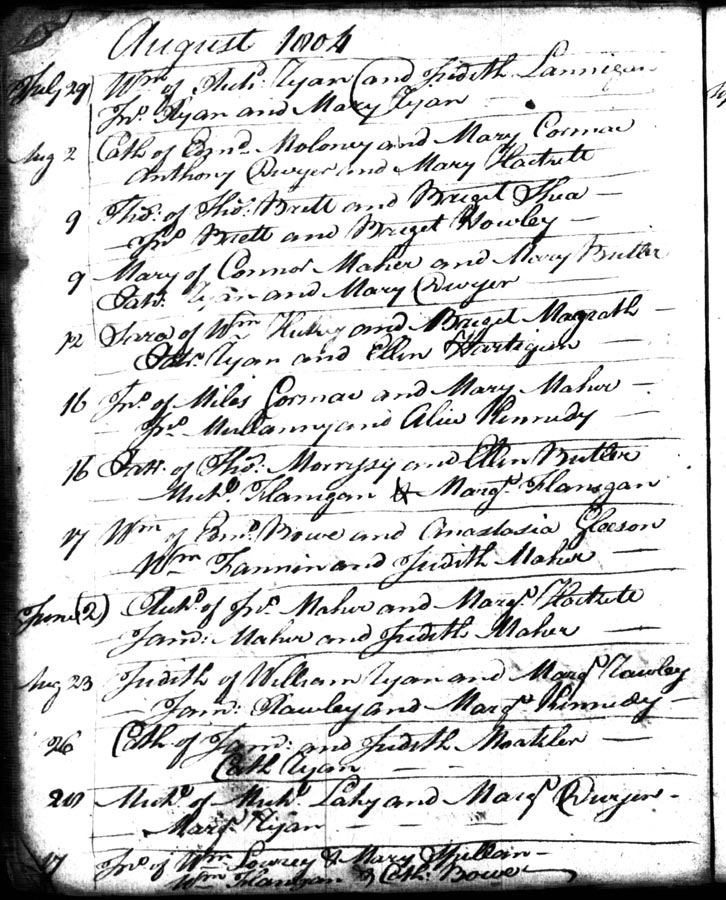 August 1804
July 29 Wm of Richd Ryan (and Judith Lannigan
Jno Ryan and Mary Ryan
Aug 2 Cath of Edmd Moloney and Mary Cormac
Anthony Dwyer and Mary Hackett
9 Thos: of Thos: Brett and Briget Shea —
— Jno Brett and Briget Howley —
9 Mary of Connor Maher and Mary Butler
Patk: Ryan and Mary Dwyer
12 of Wm and Briget Magrath —
Patk: Ryan and Ellen Hartigan —
16 Jno of Miles Cormac and Mary Maher —
— Jno Mullanny and Alice Kennedy —
16 Patk. of Thos: Morrissy and Ellen Butler
— Michd Flanigan & Margt Flanigan
17 Wm of Edmd Bowe and Anastasia Gleeson
— Wm Fannin and Judith Maher —
June (2) Richd of Jno Maher and Margt Hackett
— Jams: Maher and Judith Maher —
Aug 23 Judith of William Ryan and Margt Rawley
— Jams: Rawley and Margt Kennedy —
26 Cath of Jams: and Judith Meahler —
Cath Ryan — —
28 Michl of Michl Lahy and Margt Dwyer —
— Margt Ryan — —
17 Jno of Wm Lowrey & Mary —
Wm Flanigan & Cath: Bowe —